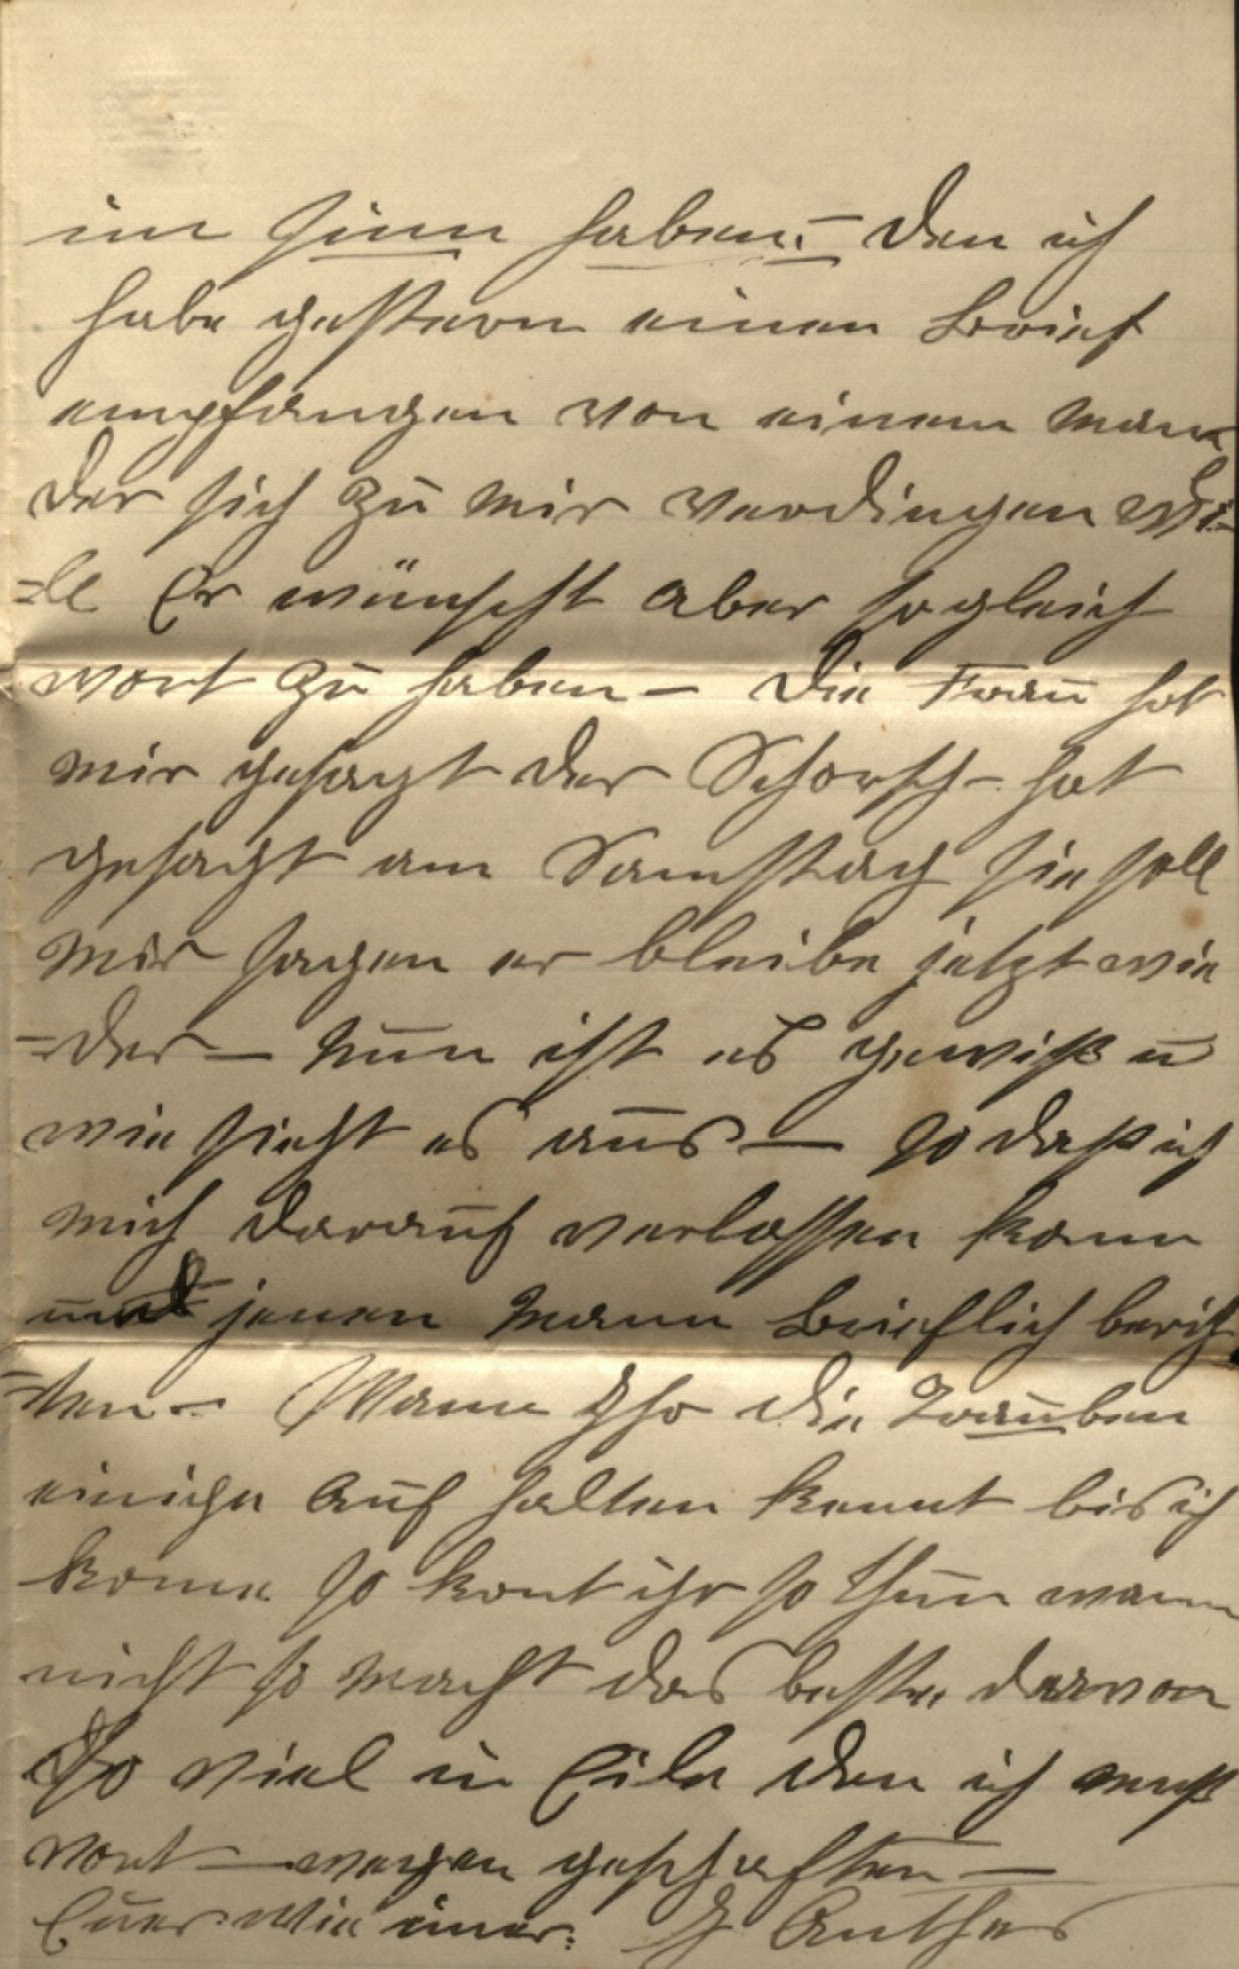 im sinn haben. – den ich
habe gestern einen Brief
empfangen von einem man
der sich zu mir verdingen wi-
=le Er wünscht aber sogleich
wort zu haben – die Frau hat
mir gesagt der Schorsch – hat
gesagt am Samstag sie soll
mir sagen er bleibe jetzt wie
=der – Nun ist es gewiß u
wie sieht es aus – so daß ich
mich darauf verlassen kann
und jenen Mann Brieflich berich
=ten – Wann Ihr die Trauben
einige auf halten kennt bis ich
kome so kont ihr so thun wann
nicht so macht das beste darvon
So viel in Eile den ich muß
vort – wegen geschäften –
Euer wie imer. J Anthes